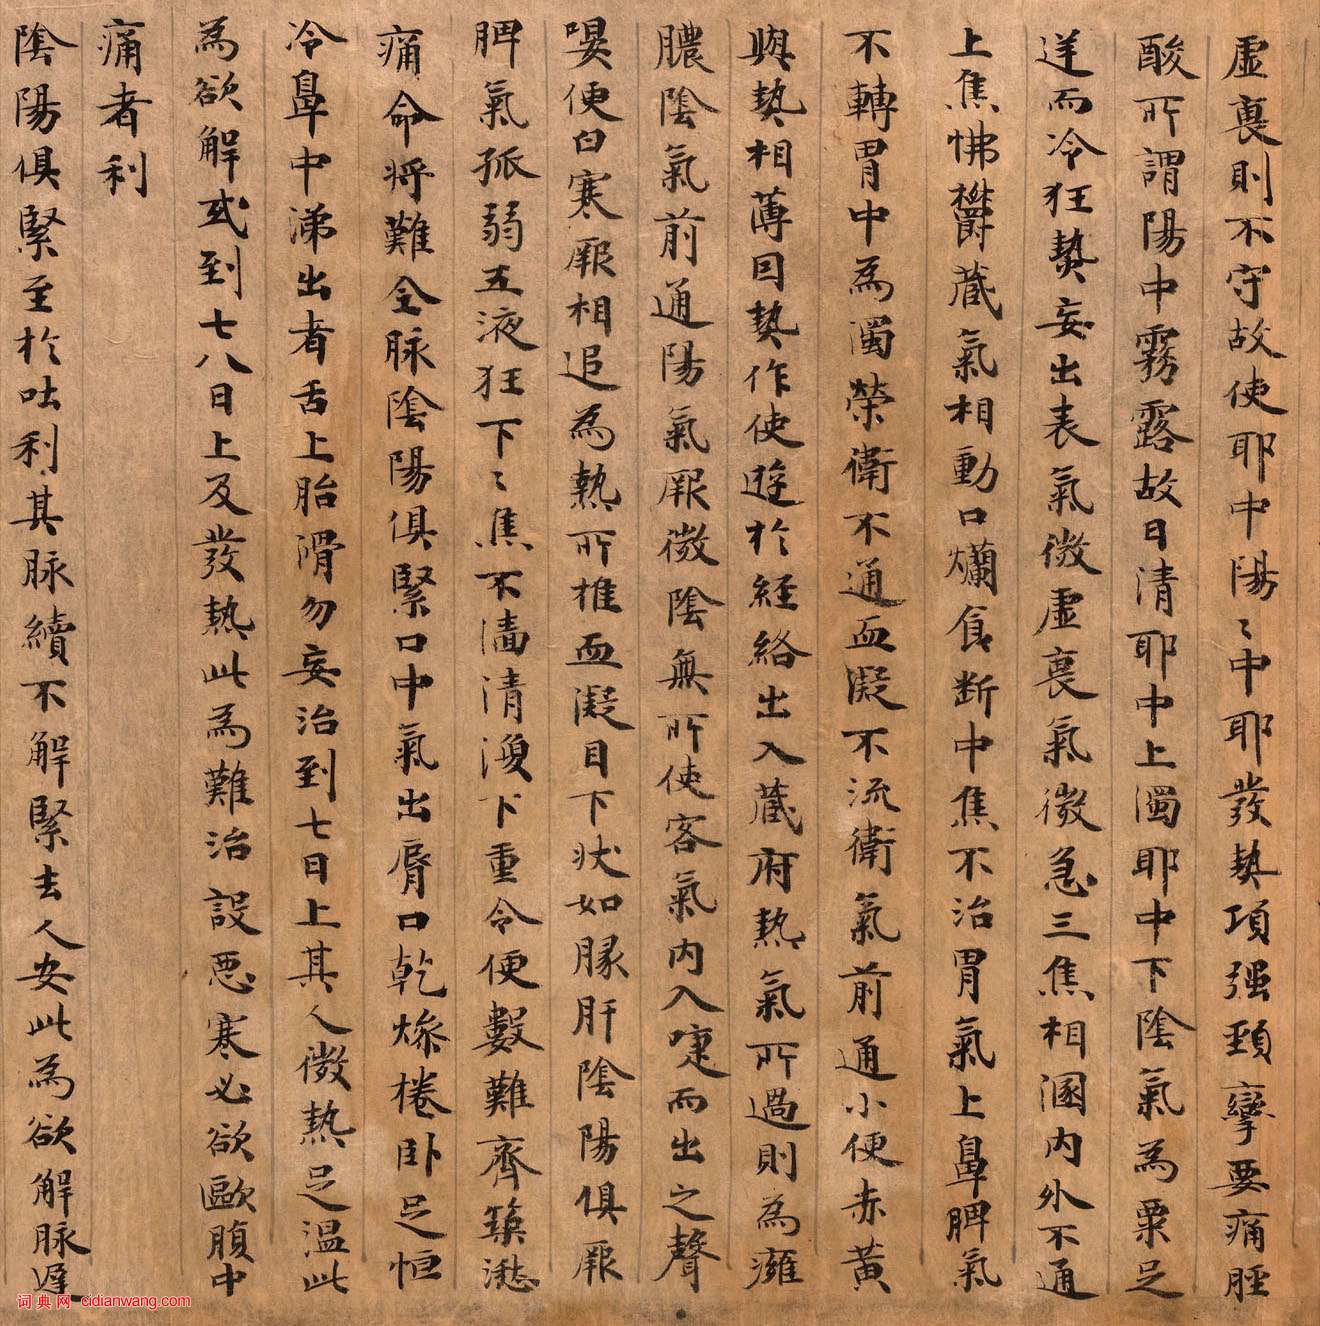 虛裏則不守故使耶中陽〻中耶發熱項强頸攣要痛脛
酸所謂陽中霧露故曰清耶中上濁耶中下陰氣為粟足
逆而冷狂熱妄出表氣微虛裏氣微急三焦相溷內外不通
上焦怫欝蔵氣相動口爛食断中焦不治胃氣上鼻脾氣
不轉胃中為濁榮衛不通血凝不流衛氣前通小便赤黄
與熱相薄因熱作使遊於經絡出入蔵府熱氣所過則為癰
膿陰氣前通陽氣厥微陰無所使客氣內入嚏而出之聲
嗢便臼寒厥相追為熱所推血凝自下狀如豚肝陰陽俱厥
脾氣孤弱五液狂下〻焦不濇清澓下重令便數難齊築湫
痛命将難全脉陰陽俱緊口中氣出脣口乾燥棬卧足恒
冷鼻中涕出者舌上胎滑勿妄治到七日上其人微熱足温此
為欲解或到七八日上及發熱此為難治設惡寒必欲歐腹中
痛者利
陰陽俱緊至於吐利其脉續不解緊去人安此為欲解脉遲
词典网 cidianwang.com